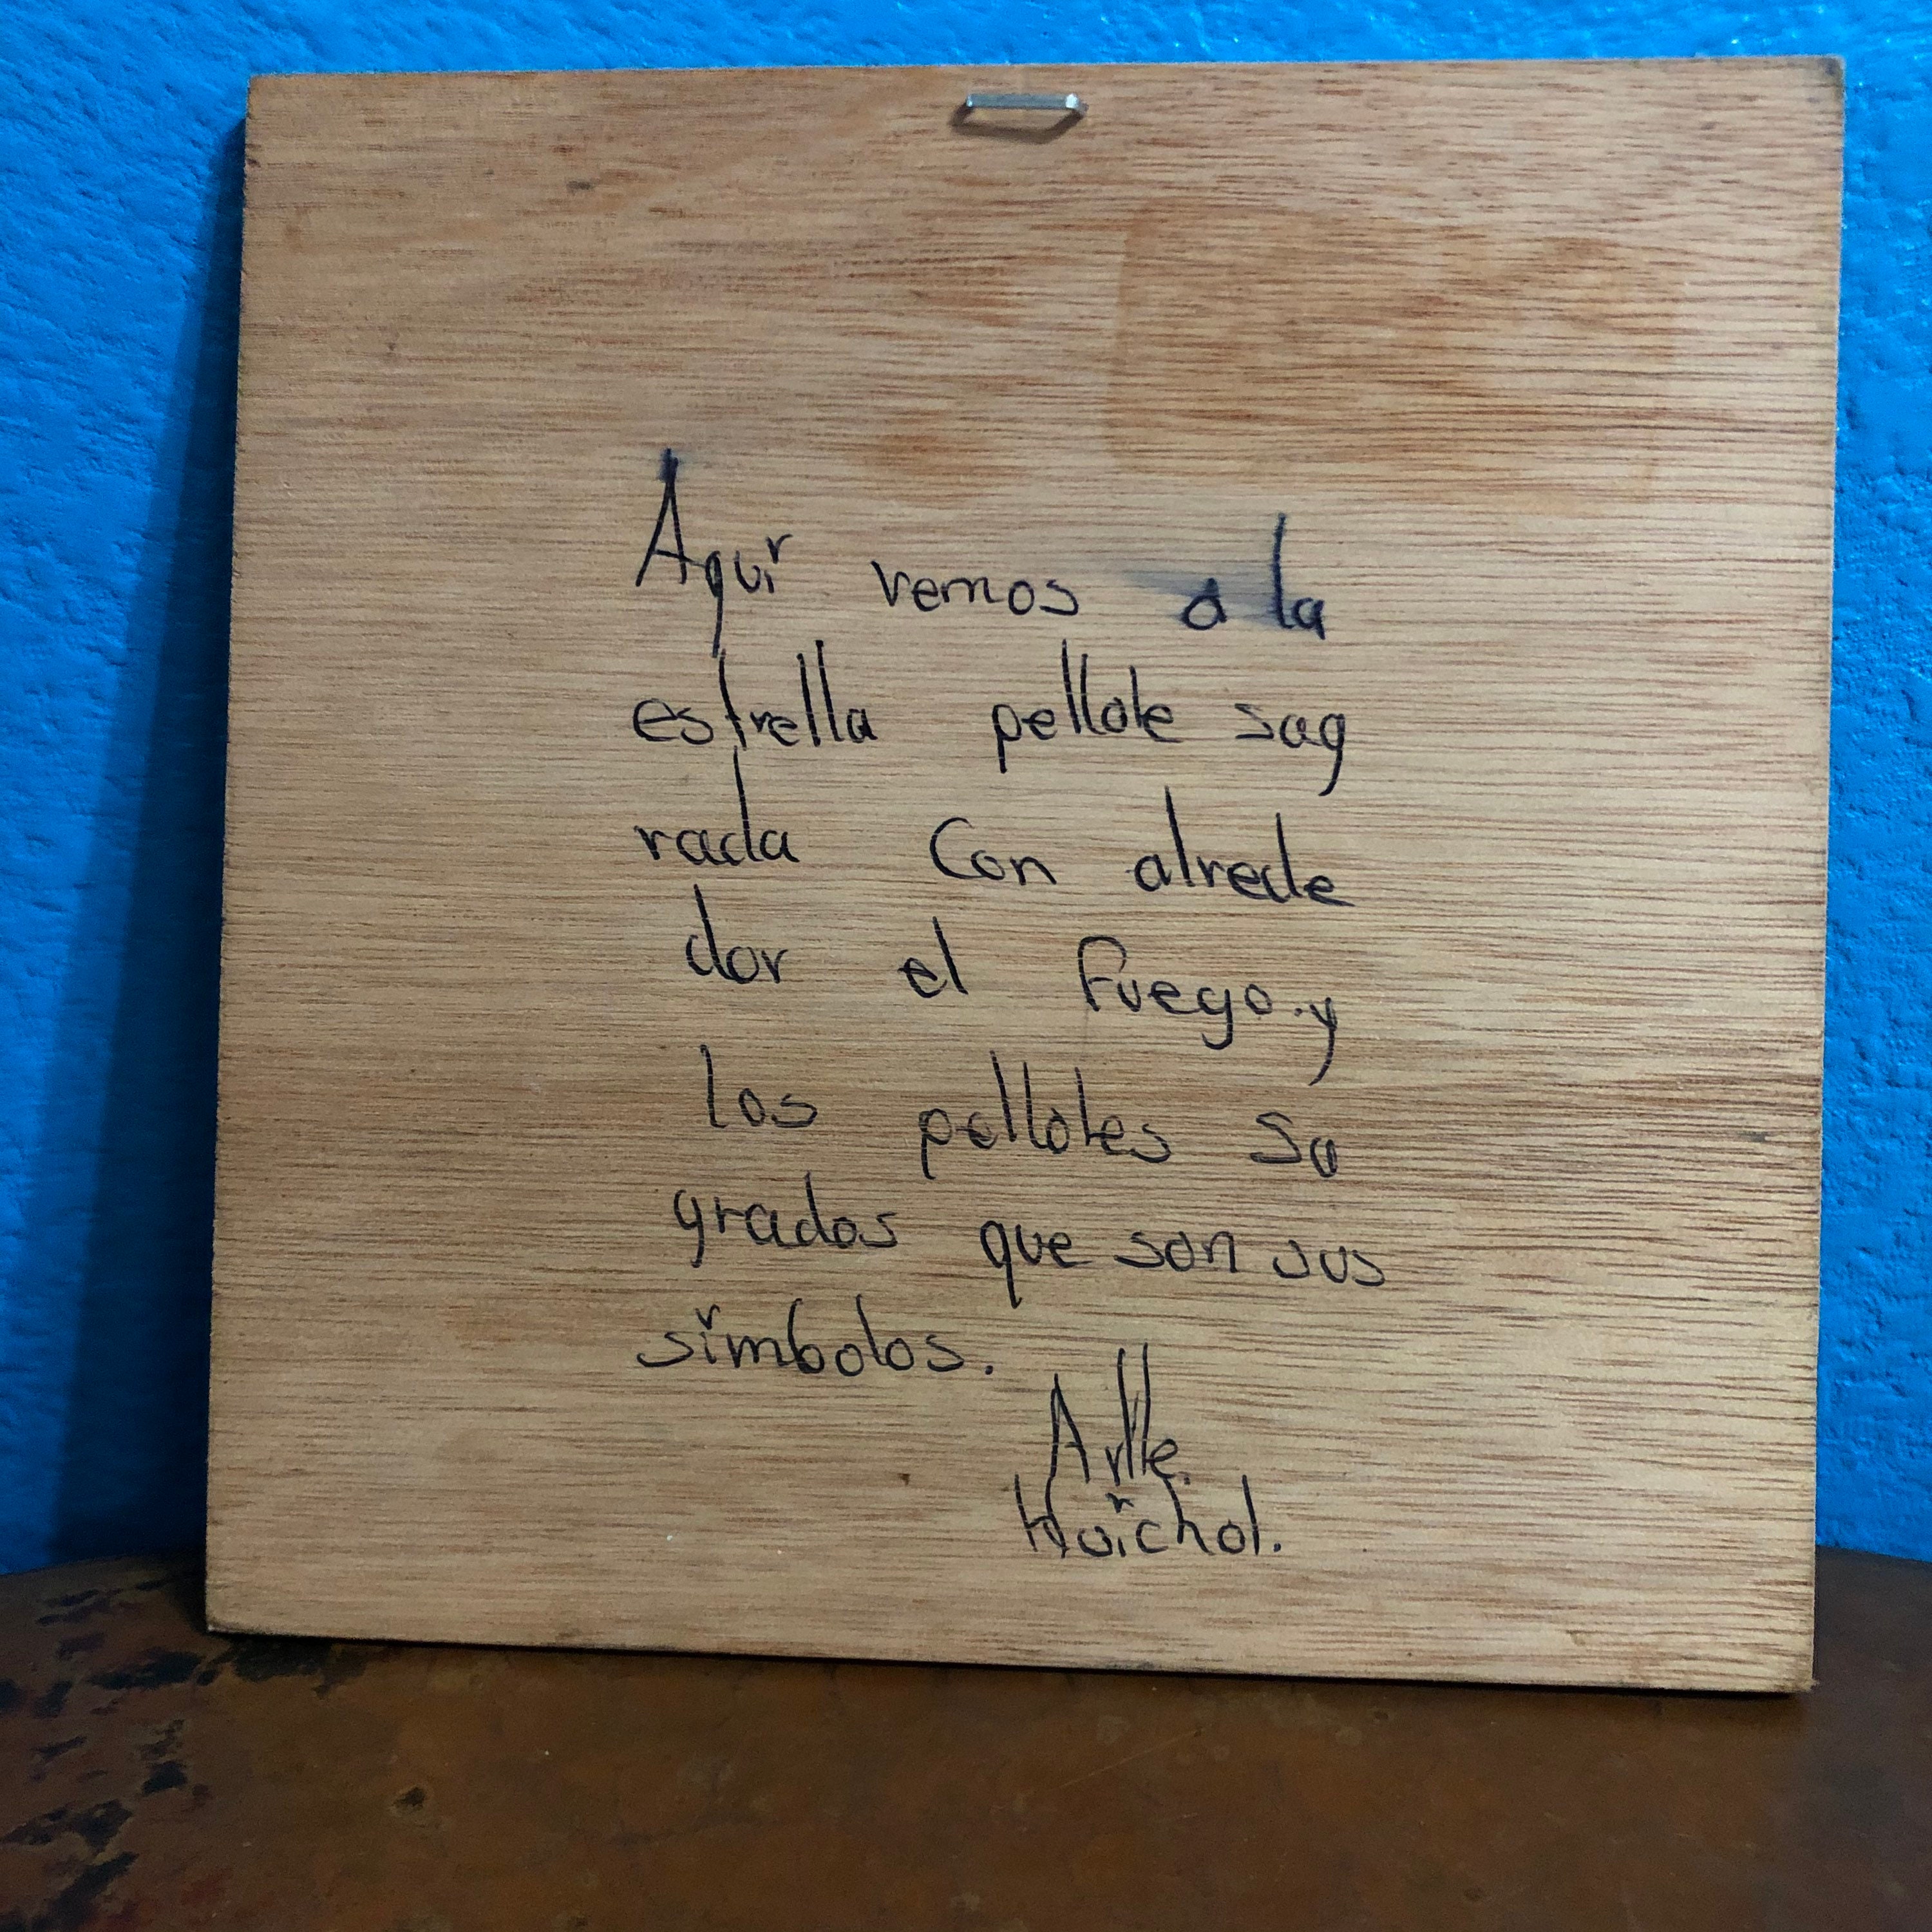 Aquí vemos a la
estrella pellote sag
rada Con alrede
dor el fuego.y
los pellotes sa
grados que son sus
símbolos.
Artte.
Huíchol.